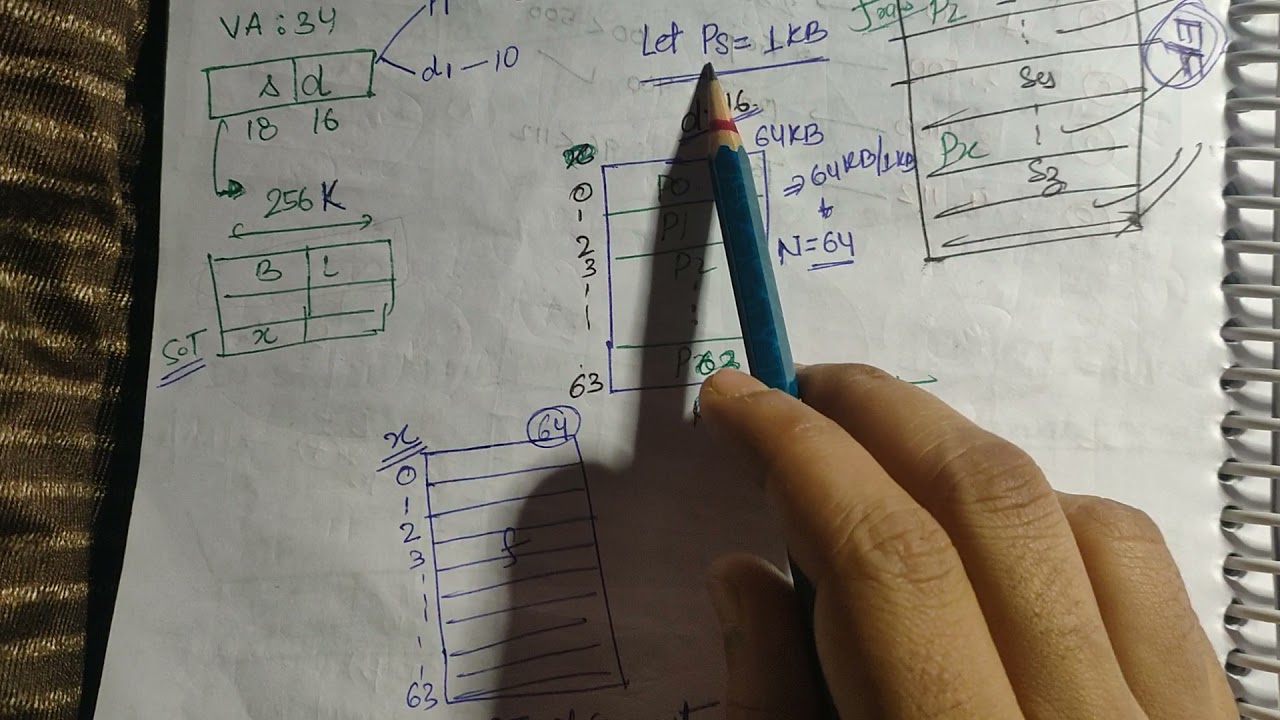 VA : 34
d1 — 10
s d
18 16
256K
B L
x
SOT
Let PS = 1KB
16
64KB
0 P0
1 P1
2
3 P2
63
⇒ 64KB/1KB
N = 64
x 64
0
1
2
3
f
63
P2
Px